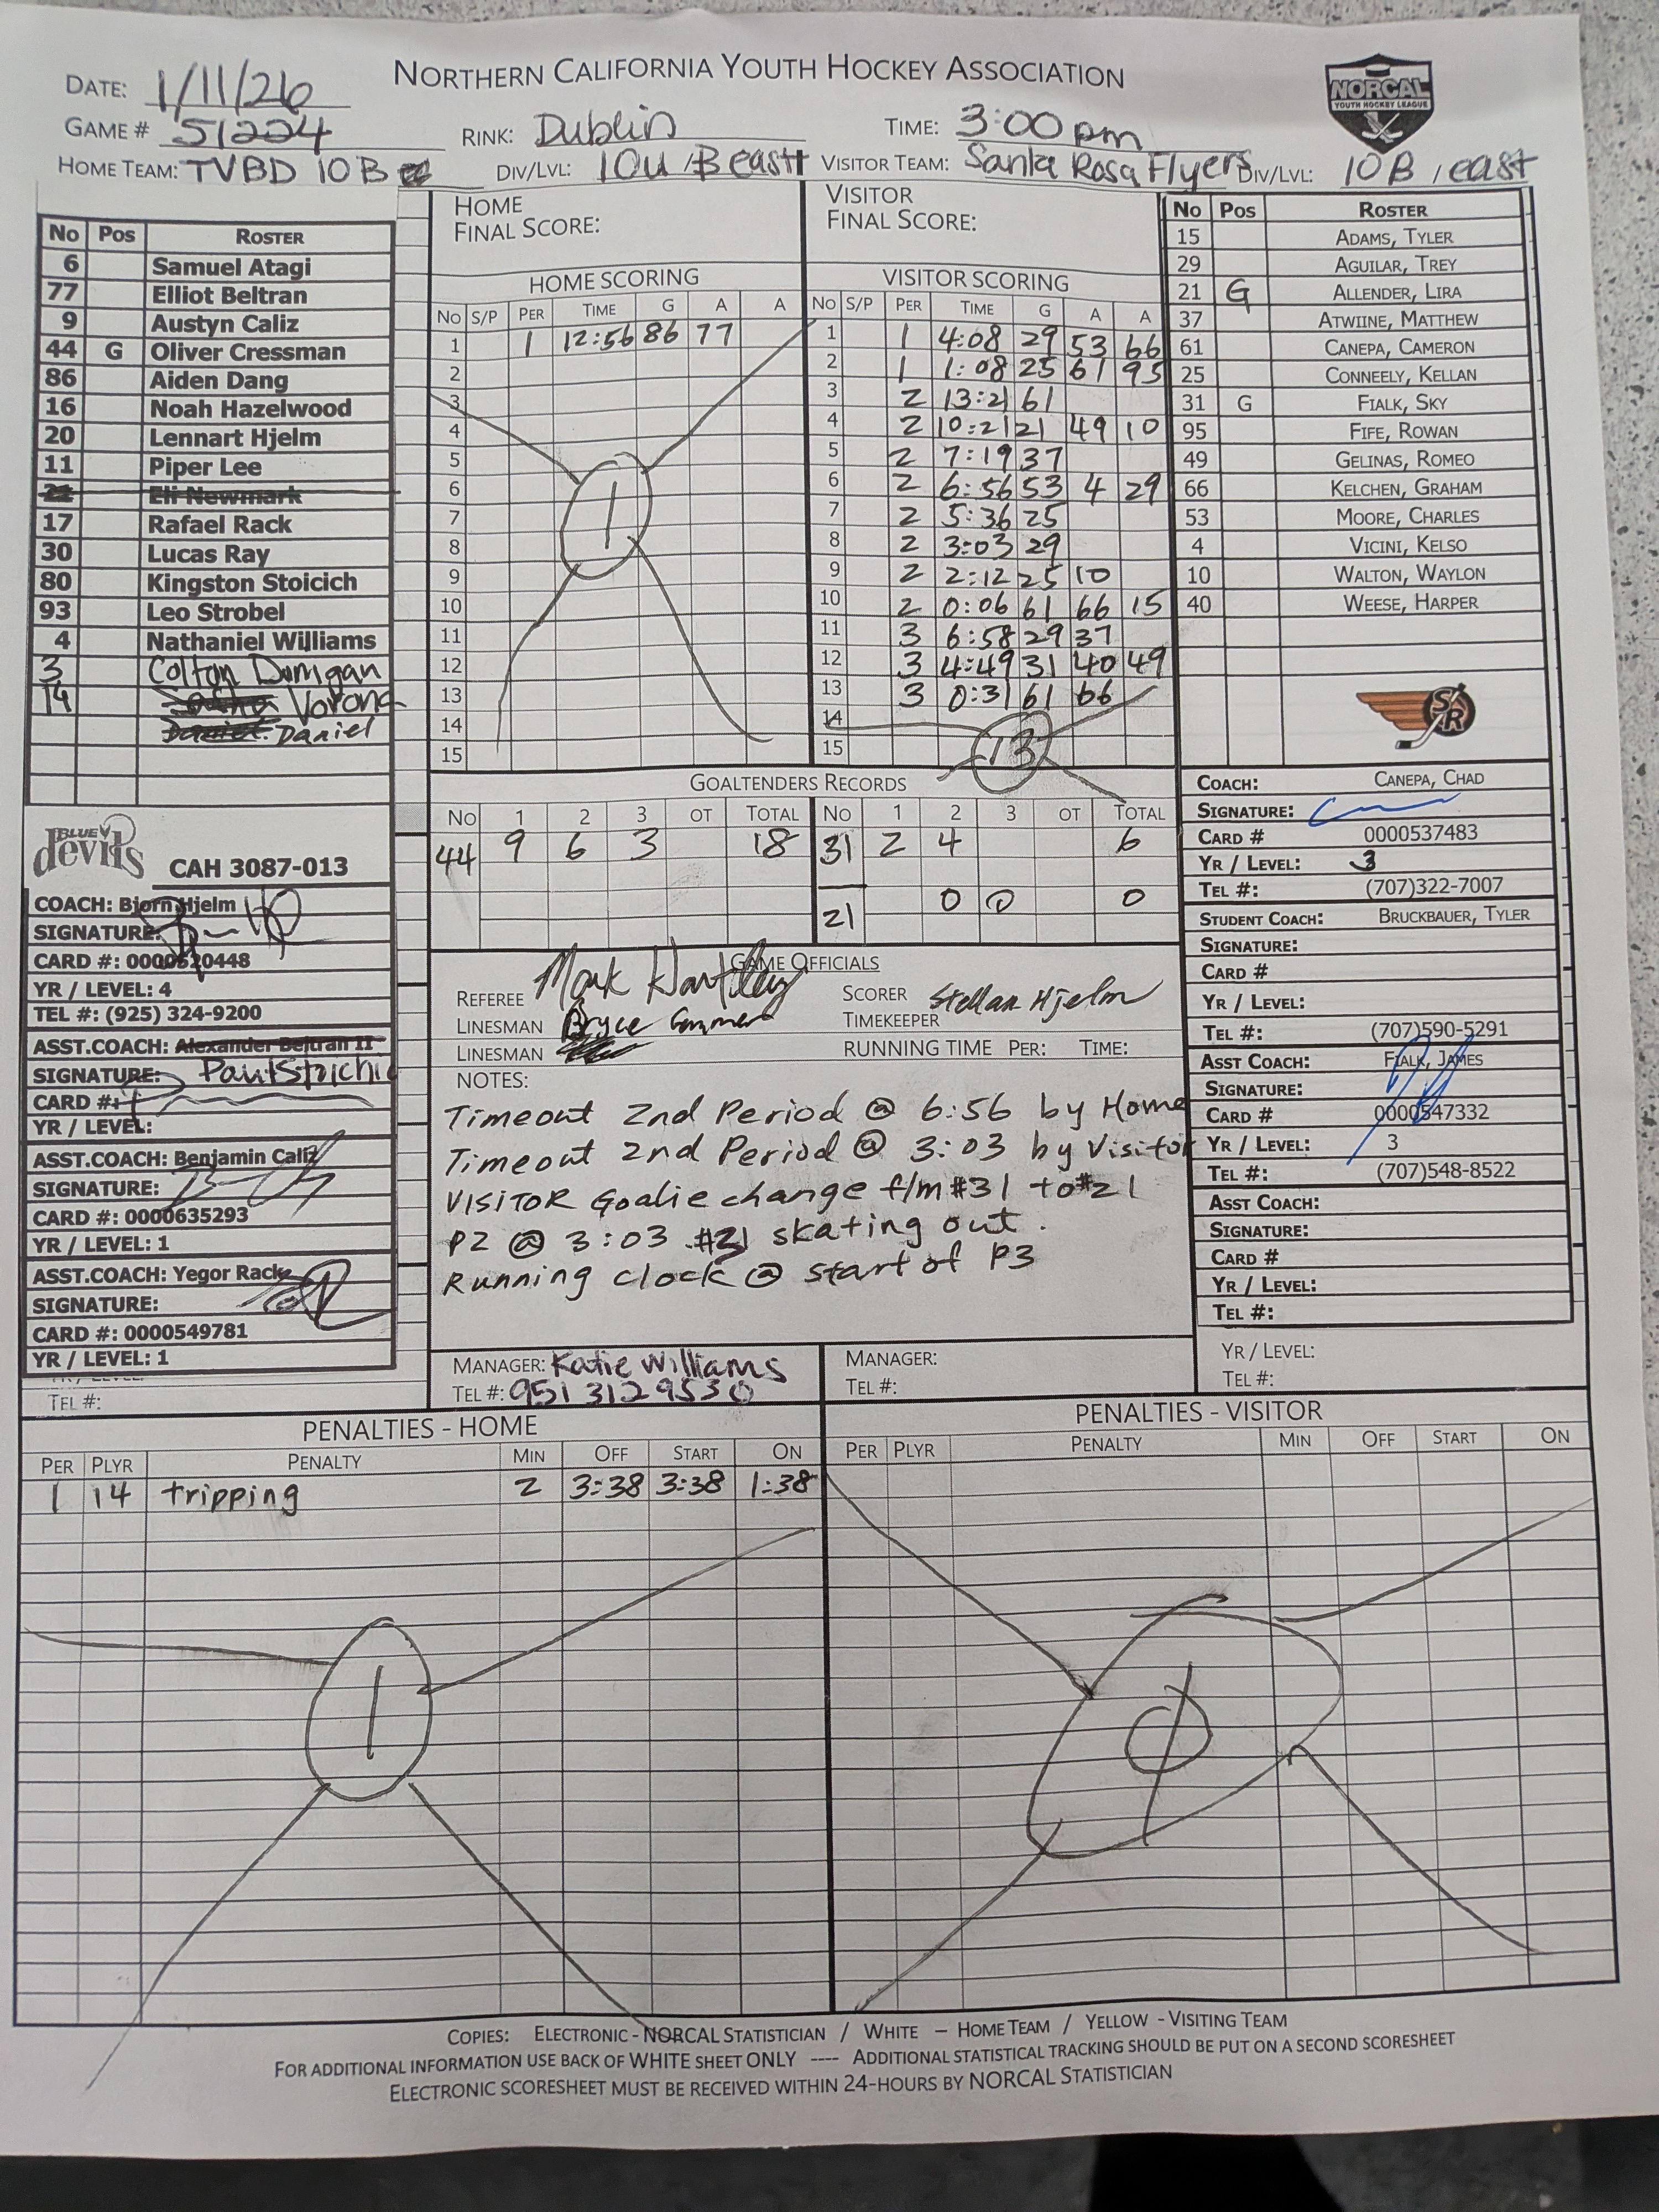 NORTHERN CALIFORNIA YOUTH HOCKEY ASSOCIATION
NORCAL
YOUTH HOCKEY LEAGUE
DATE: 1/11/26
GAME # 51224 RINK: Dublin TIME: 3:00 pm
HOME TEAM: TVBD 10B DIV/LVL: 10U / B east VISITOR TEAM: Santa Rosa Flyers DIV/LVL: 10B / east
No Pos ROSTER
6 Samuel Atagi
77 Elliot Beltran
9 Austyn Caliz
44 G Oliver Cressman
86 Aiden Dang
16 Noah Hazelwood
20 Lennart Hjelm
11 Piper Lee
Eli Newmark
17 Rafael Rack
30 Lucas Ray
80 Kingston Stoicich
93 Leo Strobel
4 Nathaniel Williams
3 Colton Dunigan
14 Vorona
Daniel
BLUE devils
CAH 3087-013
COACH: Bjorn Hjelm
SIGNATURE:
CARD #: 0000520448
YR / LEVEL: 4
TEL #: (925) 324-9200
ASST.COACH: Alexander Beltran II
SIGNATURE: Paul Stoichic
CARD #:
YR / LEVEL:
ASST.COACH: Benjamin Caliz
SIGNATURE:
CARD #: 0000635293
YR / LEVEL: 1
ASST.COACH: Yegor Rack
SIGNATURE:
CARD #: 0000549781
YR / LEVEL: 1
TEL #:
HOME
FINAL SCORE:
HOME SCORING
No S/P PER TIME G A A
1 1 12:56 86 77
2
3
4
5
6
7
8
9
10
11
12
13
14
15
1
VISITOR
FINAL SCORE:
VISITOR SCORING
No S/P PER TIME G A A
1 1 4:08 29 53 66
2 1 1:08 25 61 95
3 2 13:21 61
4 2 10:21 21 49 10
5 2 7:19 37
6 2 6:56 53 4 29
7 2 5:36 25
8 2 3:03 29
9 2 2:12 25 10
10 2 0:06 61 66 15
11 3 6:58 29 37
12 3 4:49 31 40 49
13 3 0:31 61 66
14
15
13
GOALTENDERS RECORDS
No 1 2 3 OT TOTAL No 1 2 3 OT TOTAL
44 9 6 3 18 31 2 4 6
21 0 0 0
GAME OFFICIALS
REFEREE Mark Hartley SCORER Stellan Hjelm
LINESMAN Bryce TIMEKEEPER
LINESMAN RUNNING TIME PER: TIME:
NOTES:
Timeout 2nd Period @ 6:56 by Home
Timeout 2nd Period @ 3:03 by Visitor
VISITOR Goalie change f/m #31 to #21
P2 @ 3:03 #31 skating out.
Running clock @ start of P3
MANAGER: Katie Williams
TEL #: 951 312 9530
MANAGER:
TEL #:
No Pos ROSTER
15 ADAMS, TYLER
29 AGUILAR, TREY
21 G ALLENDER, LIRA
37 ATWIINE, MATTHEW
61 CANEPA, CAMERON
25 CONNEELY, KELLAN
31 G FIALK, SKY
95 FIFE, ROWAN
49 GELINAS, ROMEO
66 KELCHEN, GRAHAM
53 MOORE, CHARLES
4 VICINI, KELSO
10 WALTON, WAYLON
40 WEESE, HARPER
SR
COACH: CANEPA, CHAD
SIGNATURE:
CARD # 0000537483
YR / LEVEL: 3
TEL #: (707)322-7007
STUDENT COACH: BRUCKBAUER, TYLER
SIGNATURE:
CARD #
YR / LEVEL:
TEL #: (707)590-5291
ASST COACH: FIALK, JAMES
SIGNATURE:
CARD # 0000547332
YR / LEVEL: 3
TEL #: (707)548-8522
ASST COACH:
SIGNATURE:
CARD #
YR / LEVEL:
TEL #:
YR / LEVEL:
TEL #:
PENALTIES - HOME
PER PLYR PENALTY MIN OFF START ON
1 14 tripping 2 3:38 3:38 1:38
1
PENALTIES - VISITOR
PER PLYR PENALTY MIN OFF START ON
0
COPIES: ELECTRONIC - NORCAL STATISTICIAN / WHITE – HOME TEAM / YELLOW - VISITING TEAM
FOR ADDITIONAL INFORMATION USE BACK OF WHITE SHEET ONLY ---- ADDITIONAL STATISTICAL TRACKING SHOULD BE PUT ON A SECOND SCORESHEET
ELECTRONIC SCORESHEET MUST BE RECEIVED WITHIN 24-HOURS BY NORCAL STATISTICIAN